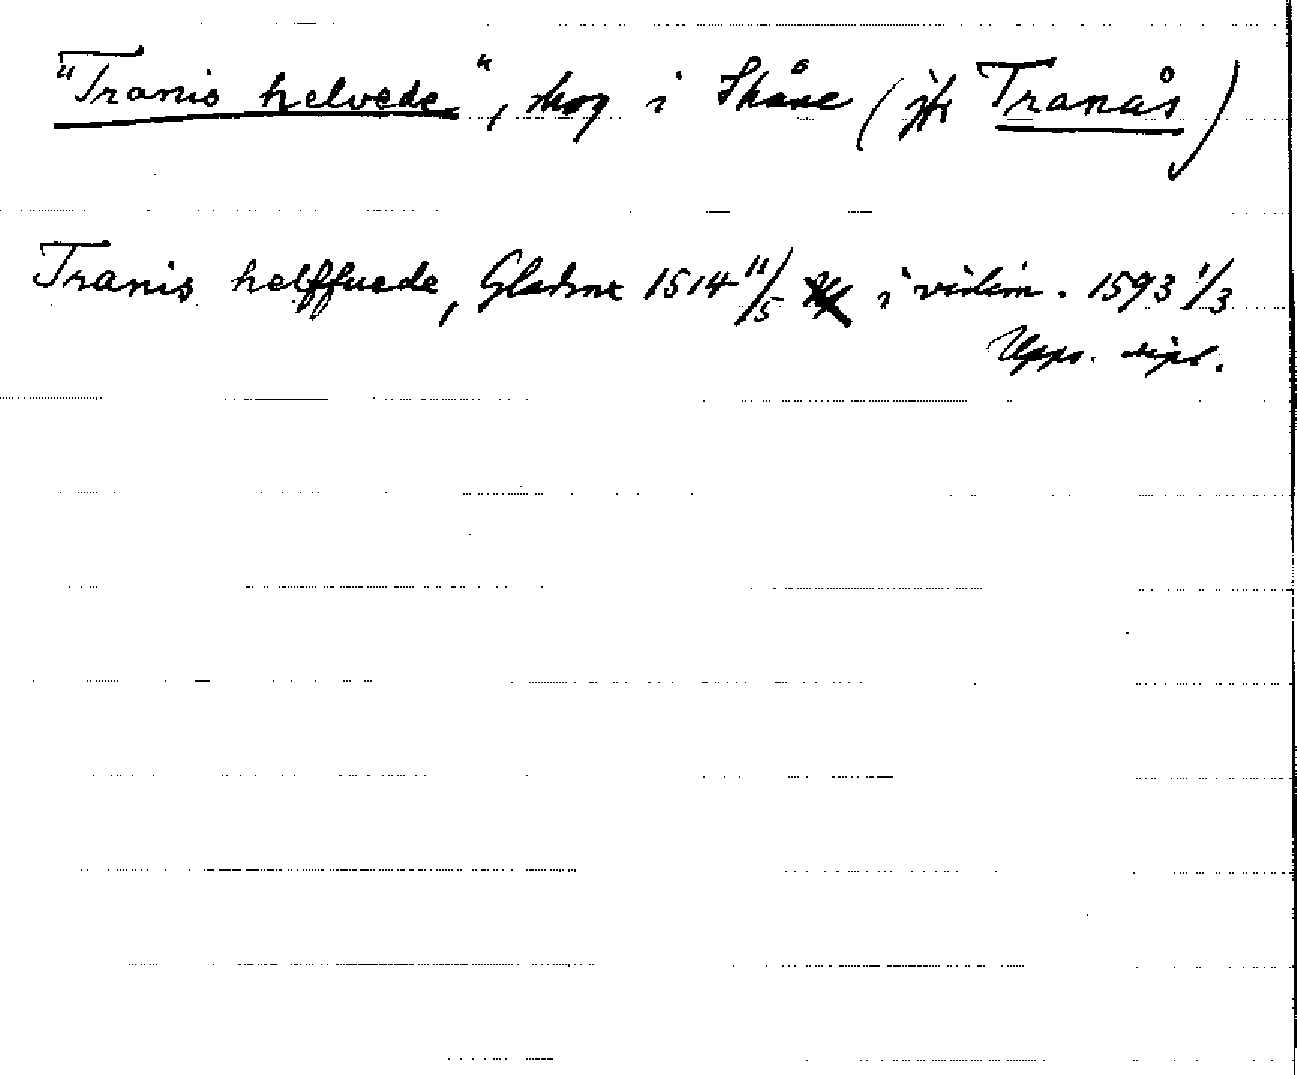 "Tranis helvede", skog i Skåne (jfr Tranås)
Tranis helffuede, Gladsax 1514 11/5 i vidim. 1593 1/3
Upps. dipl.